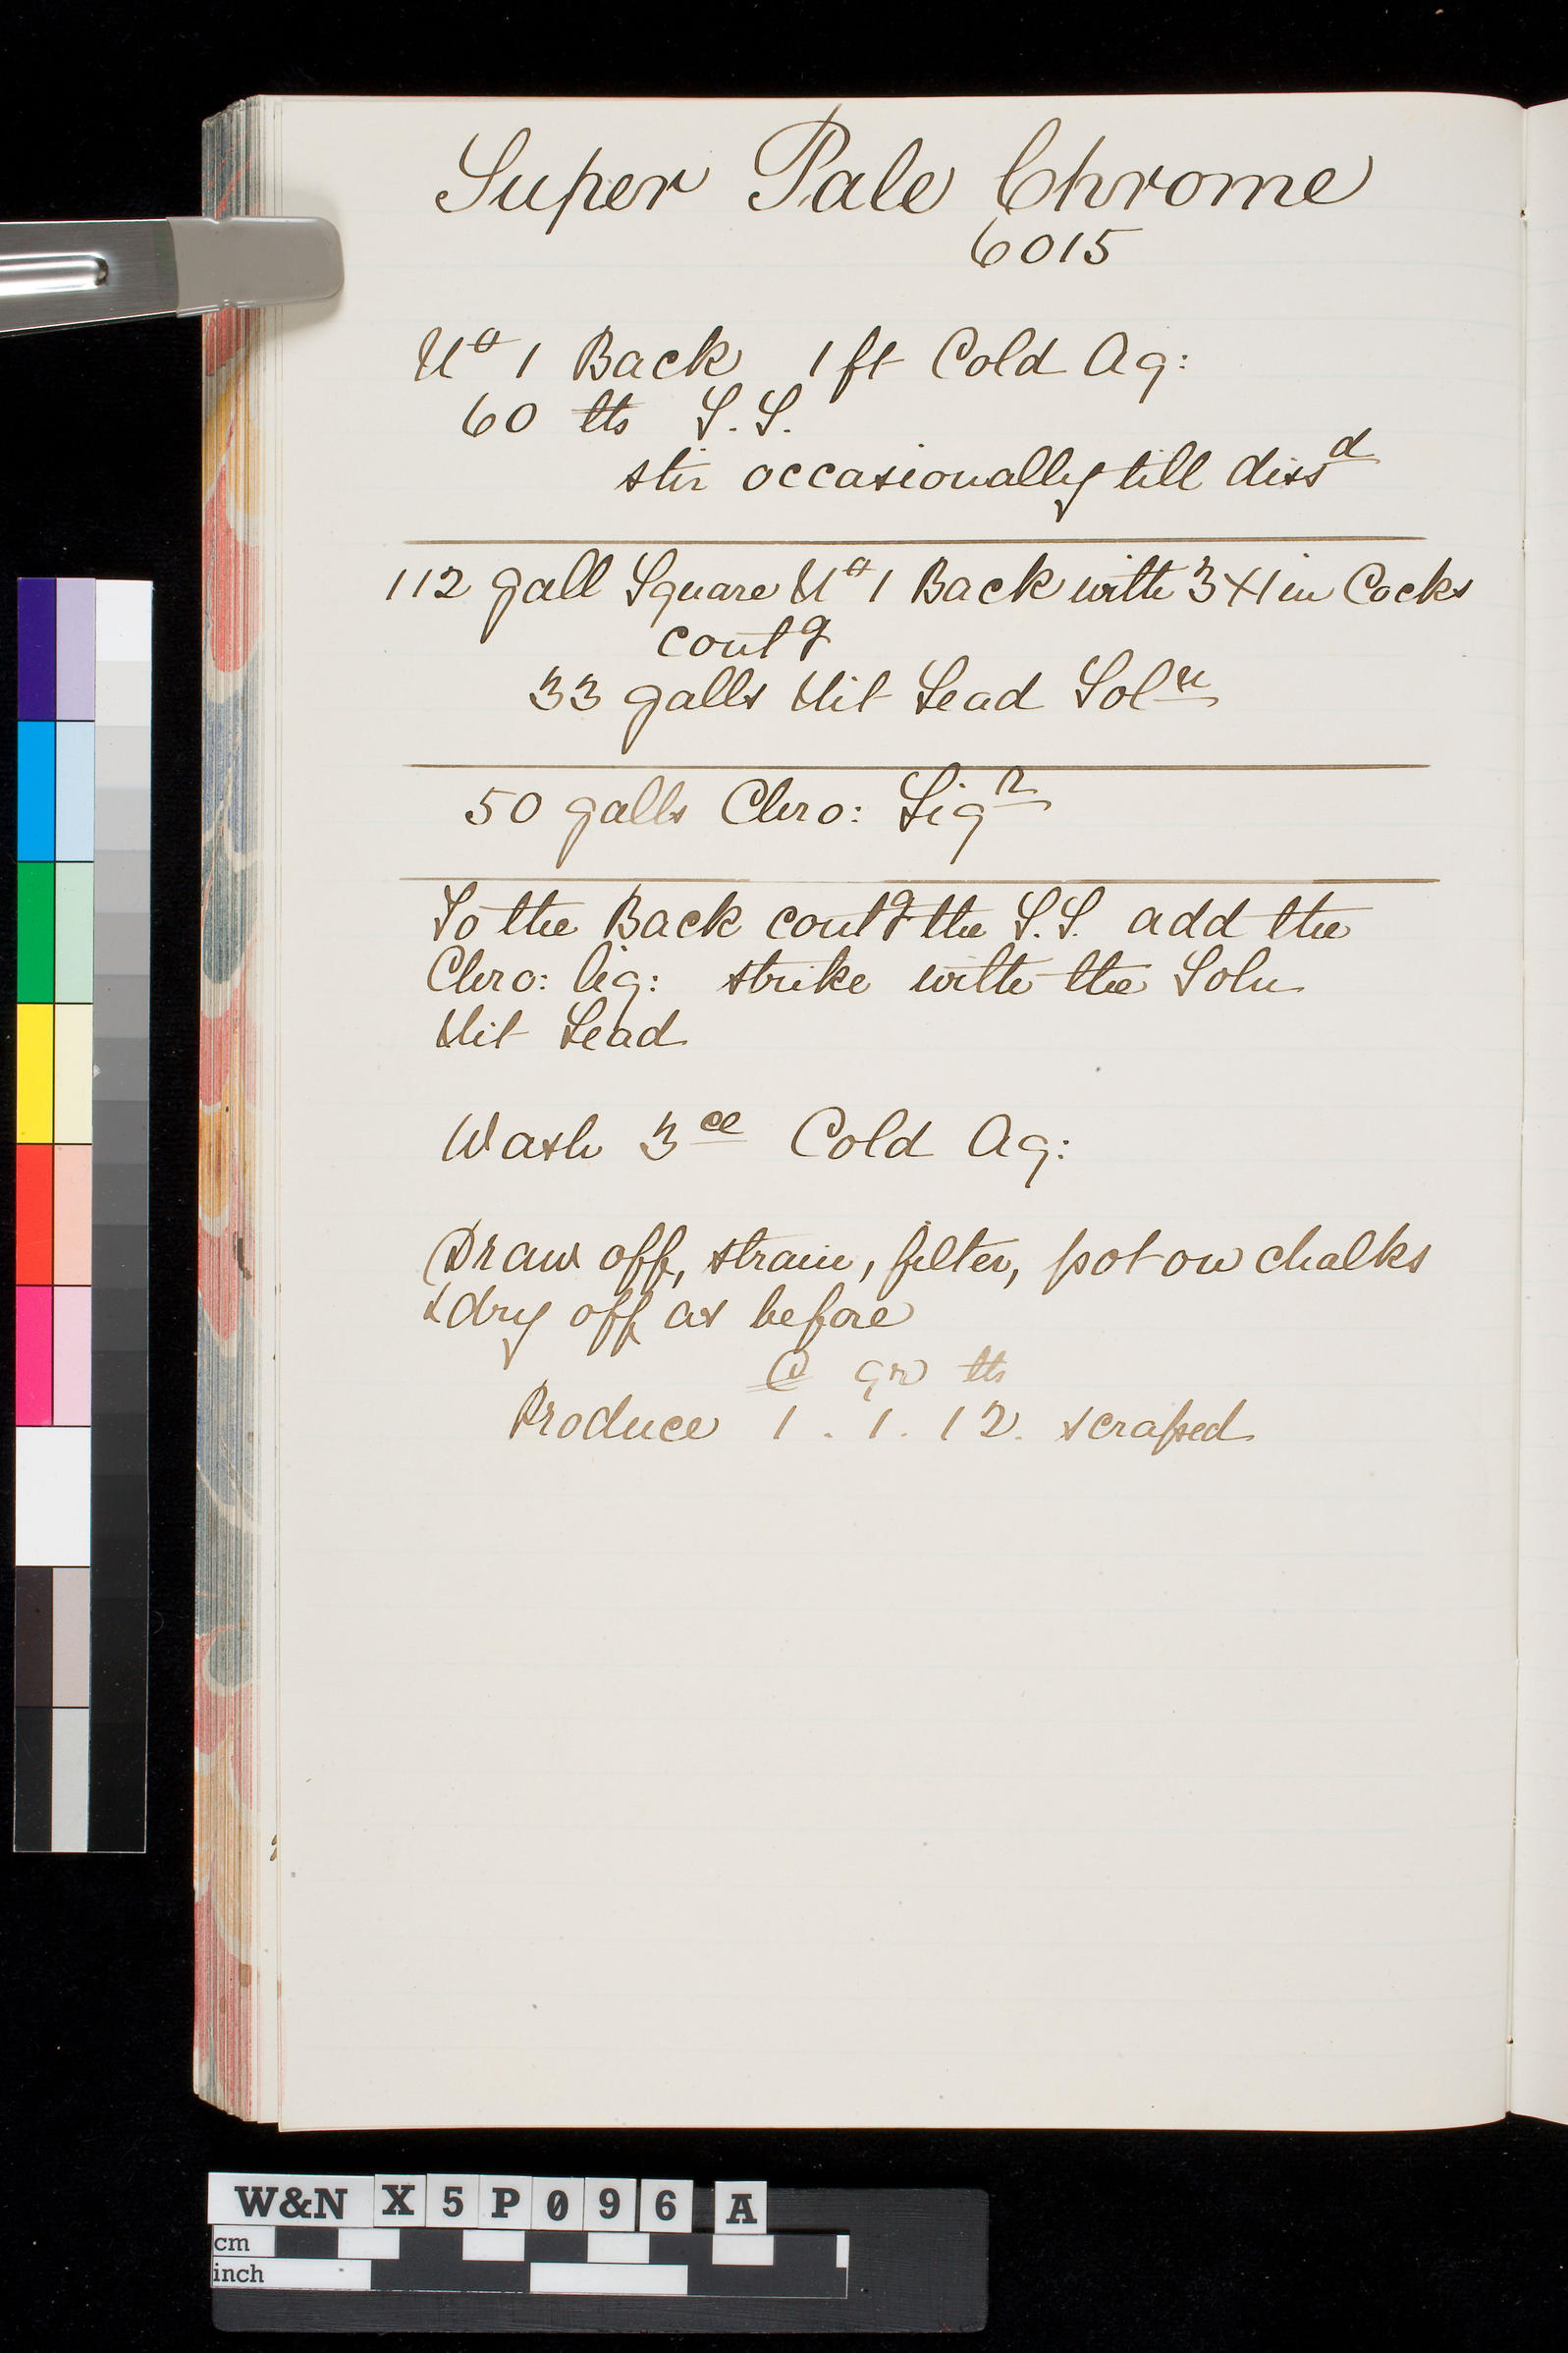 Super Pale Chrome
6015
No 1 Back 1 ft Cold Aq:
60 lbs S.S.
stir occasionally till dissd
112 gall Square No 1 Back with 3 X 1 in Cocks
contg
33 galls Nit Lead Soln
50 galls Chro: Liqr
To the Back contg the S.S. add the
Chro: liq: strike with the Soln
Nit Lead
Wash 3ce Cold Aq:
Draw off, strain, filter, pot on chalks
& dry off as before
C qrs lbs
Produce 1 . 1 . 12 . scraped
W&N X5P096 A
cm
inch